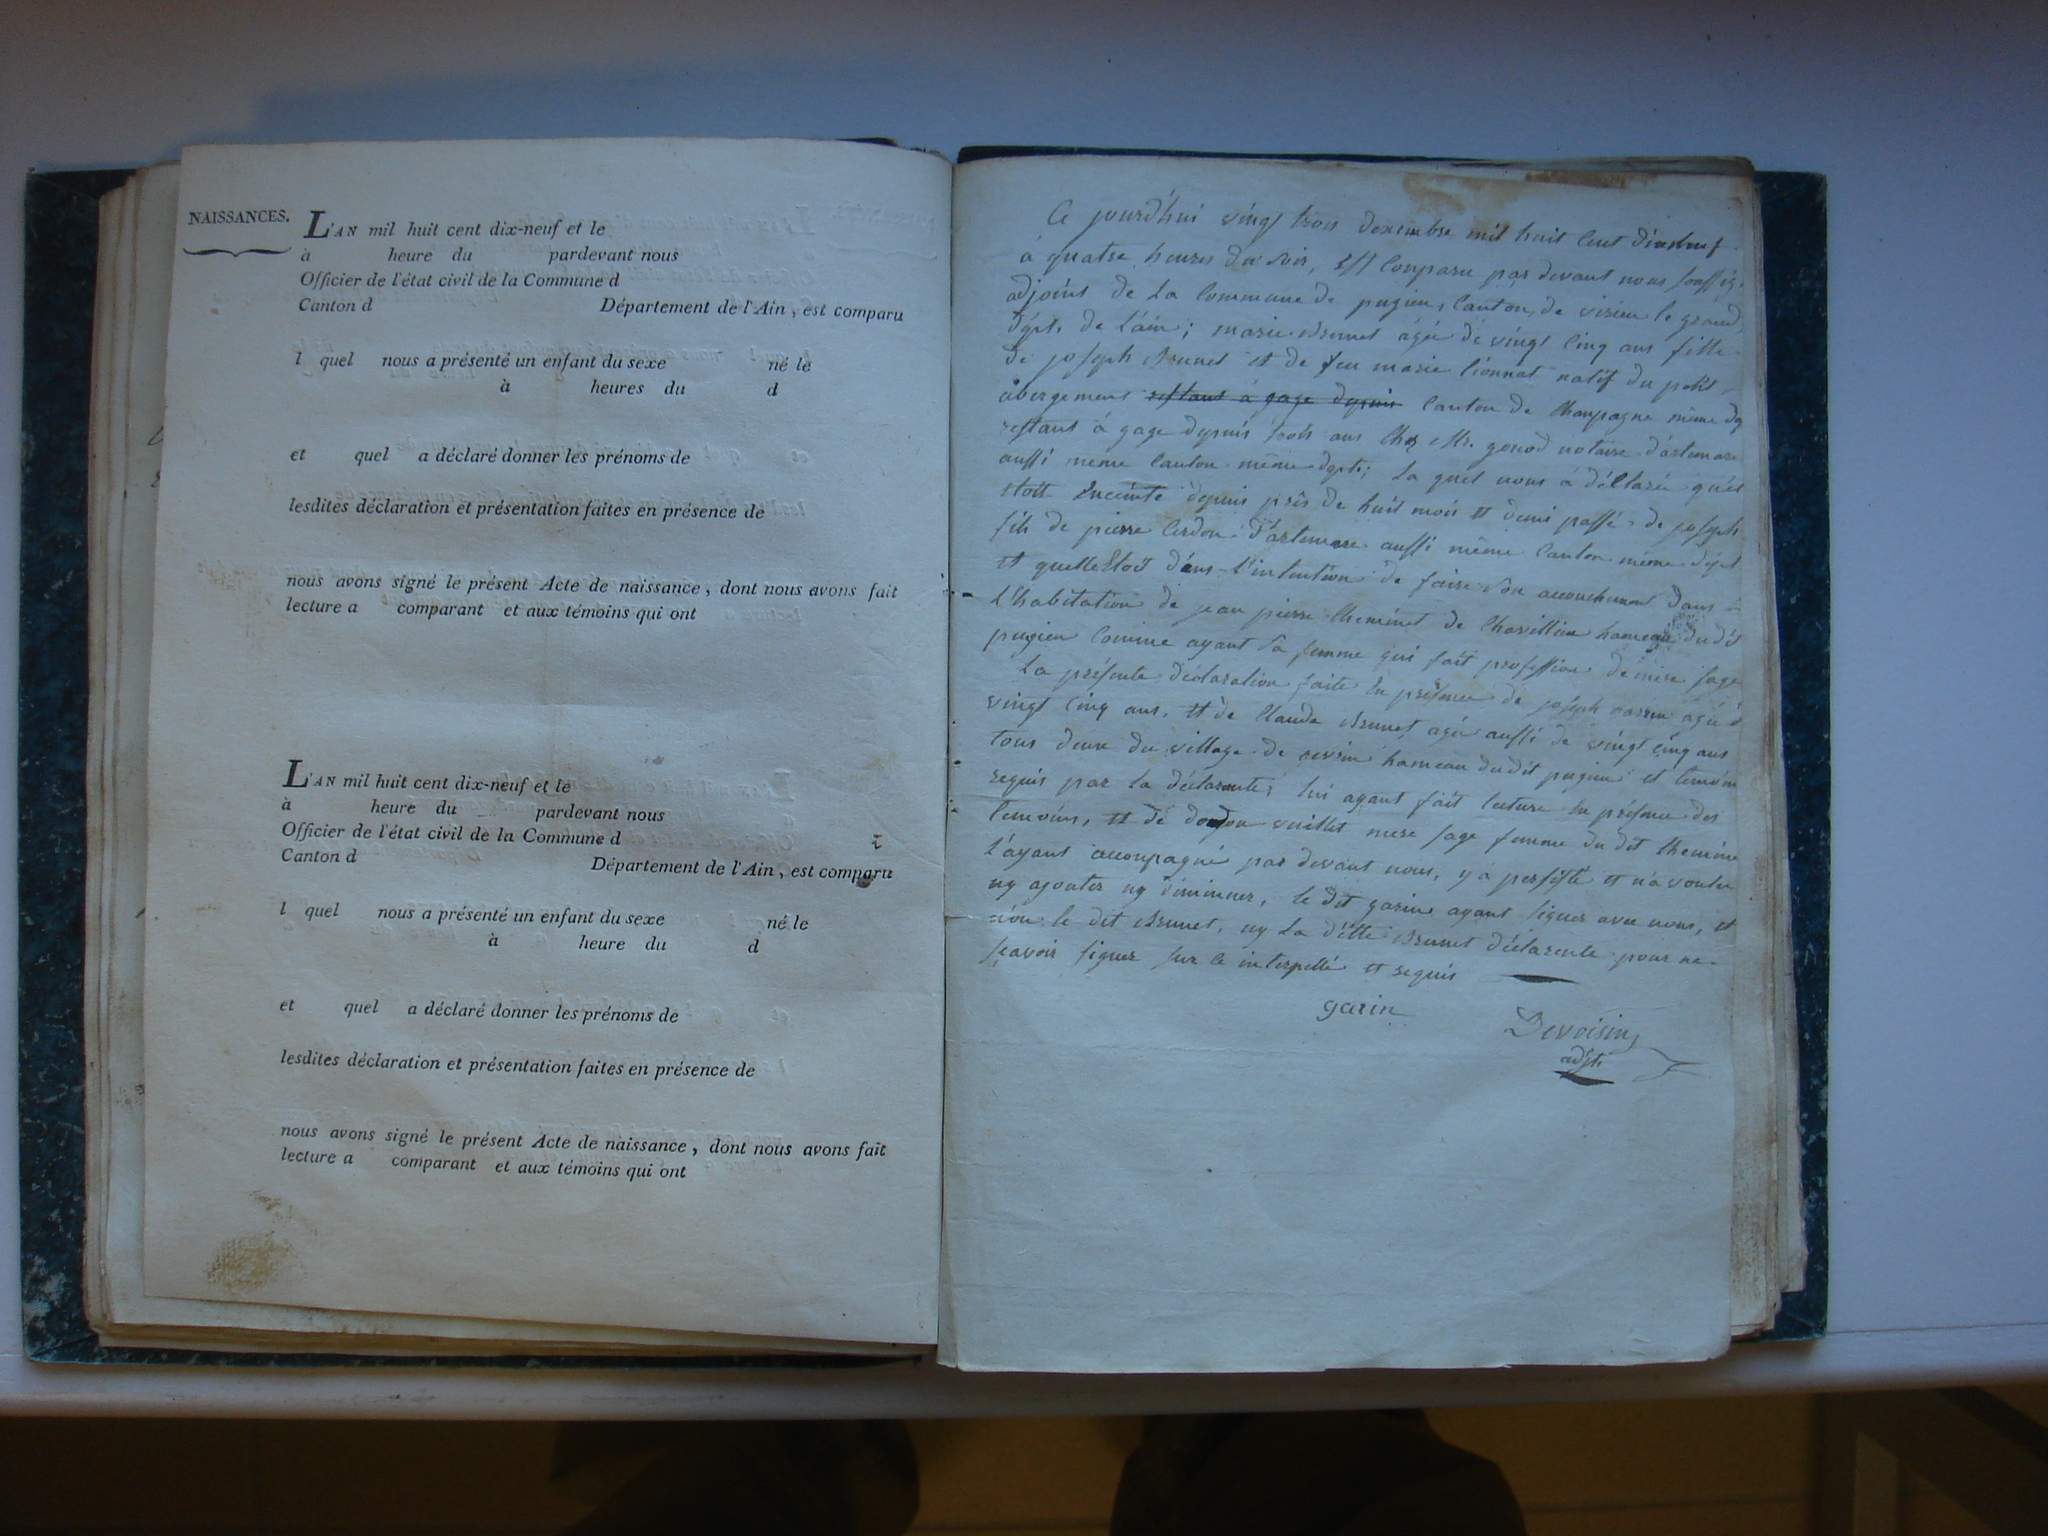 NAISSANCES.
L'AN mil huit cent dix-neuf et le
à heure du pardevant nous
Officier de l'état civil de la Commune d
Canton d Département de l'Ain, est comparu
l quel nous a présenté un enfant du sexe né le
à heures du d
et quel a déclaré donner les prénoms de
lesdites déclaration et présentation faites en présence de
nous avons signé le présent Acte de naissance, dont nous avons fait
lecture a comparant et aux témoins qui ont
L'AN mil huit cent dix-neuf et le
à heure du pardevant nous
Officier de l'état civil de la Commune d
Canton d Département de l'Ain, est comparu
l quel nous a présenté un enfant du sexe né le
à heure du d
et quel a déclaré donner les prénoms de
lesdites déclaration et présentation faites en présence de
nous avons signé le présent Acte de naissance, dont nous avons fait
lecture a comparant et aux témoins qui ont
Ce jourd'hui vingt trois dexembre mil huit cent dixneuf
à quatre heures du soir, est comparu par devant nous
adjoint de la Commune de pugieu, Canton de virieu le grand
dépt. de l'ain; marie Brunet agée de vingt cinq ans fille
de joseph Brunet et de feu marie natif du petit
abergement restant à gage depuis Canton de Champagne même
restant à gage depuis trois ans chez Mr. gonod notaire d'artemare
aussi meme Canton même dept; la quel nous à déclaré
etoit enceinte depuis près de huit mois et demi passé de joseph
fils de pierre Cerdon d'artemare aussi même Canton même dépt
et quelle etoit dans l'intention de faire son accouchement dans
l'habitation de jean pierre Cheminet de Chavillieu hameau du dit
pugieu Comme ayant sa femme qui fait profession de mère sage
la présente déclaration faite en présence de joseph garin agé d
vingt cinq ans, et de Claude Brunet agé aussi de vingt cinq ans
tous deux du village de hameau du dit pugieu et temoin
requis par la déclarante; lui ayant fait lecture en présence des
temoins, et de vuillet mere sage femme du dit
l'ayant accompagné par devant nous, y a persisté et n'a voulu
ny ajouter ny diminuer, le dit garin ayant signer avec nous, et
non le dit Brunet, ny la ditte Brunet déclarente pour ne
sçavoir signer sur ce interpellé et requis
garin
Devoisin
adjt.